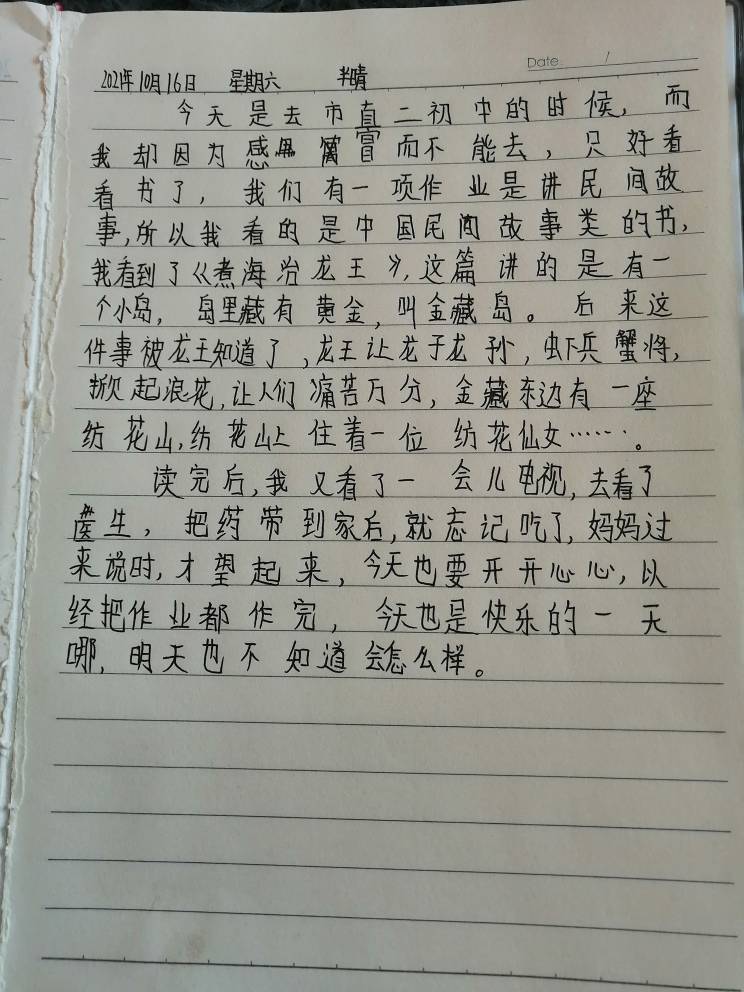 Date /
2021年10月16日 星期六 半晴
今天是去市直二初中的时候，而
我却因为感冒而不能去，只好看
看书了，我们有一项作业是讲民间故
事，所以我看的是中国民间故事类的书，
我看到了《煮海治龙王》，这篇讲的是有一
个小岛，岛里藏有黄金，叫金藏岛。后来这
件事被龙王知道了，龙王让龙子龙孙，虾兵蟹将，
掀起浪花，让人们痛苦万分，金藏东边有一座
纺花山，纺花山上住着一位纺花仙女……。
读完后，我又看了一会儿电视，去看了
医生，把药带到家后，就忘记吃了，妈妈过
来说时，才望起来，今天也要开开心心，以
经把作业都作完，今天也是快乐的一天
哪，明天也不知道会怎么样。